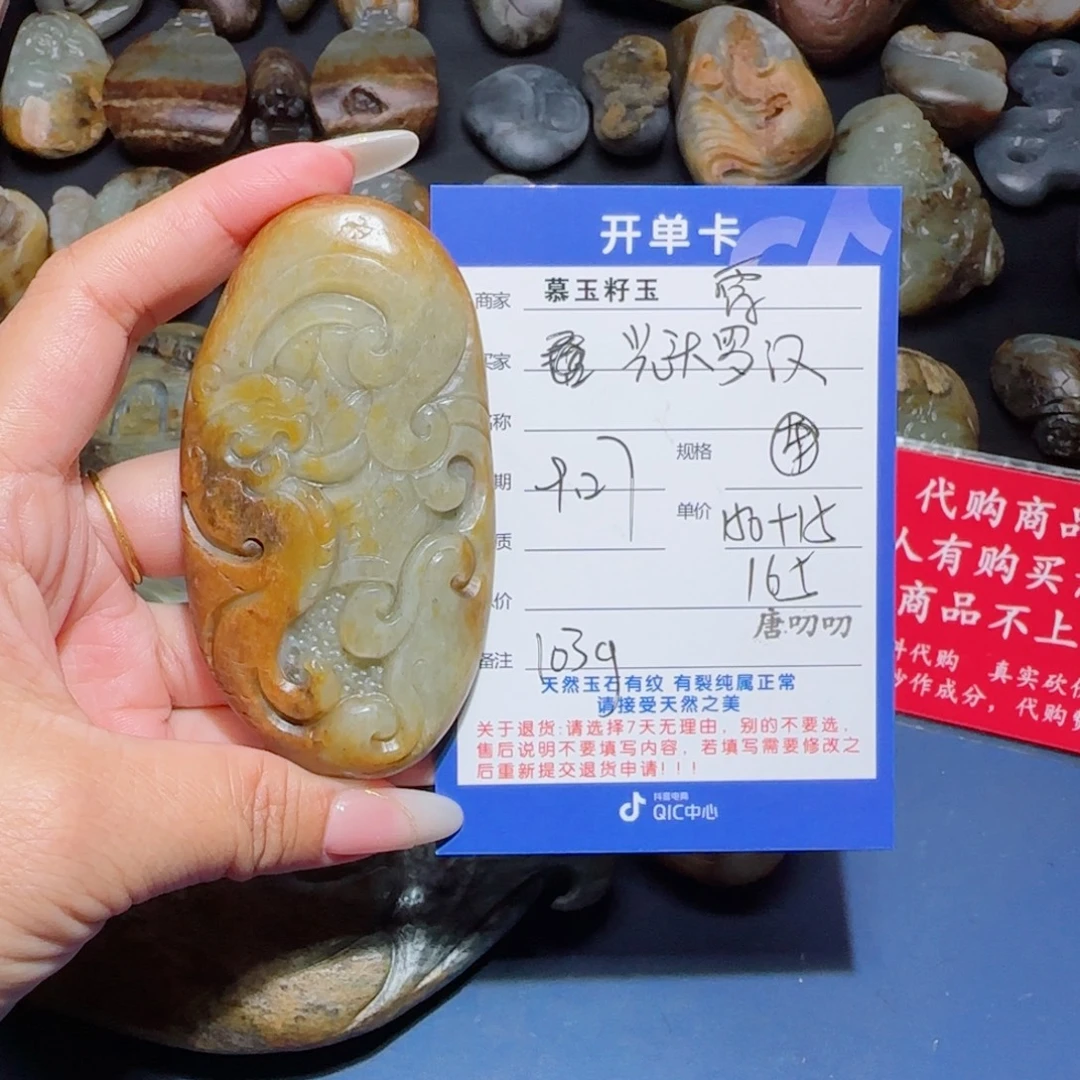 开单卡
商家 慕玉籽玉
买家 兴获罗汉
称
期 9.27
规格 中
质
单价 150+15
165
价
唐.叨叨
备注 103g
天然玉石有纹 有裂纯属正常
请接受天然之美
关于退货:请选择7天无理由,别的不要选,
售后说明不要填写内容,若填写需要修改之
后重新提交退货申请!!!
抖音电商
QIC中心
代购商品
人有购买
商品不上
代购 真实砍价
炒作成分,代购